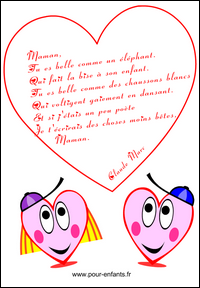 Maman,
Tu es belle comme un éléphant,
Qui fait la bise à son enfant.
Tu es belle comme des chaussons blancs
Qui voltigent gaiement en dansant.
Et si j'étais un peu poète
Je t'écrirais des choses moins bêtes,
Maman.
Claude Marc
www.pour-enfants.fr